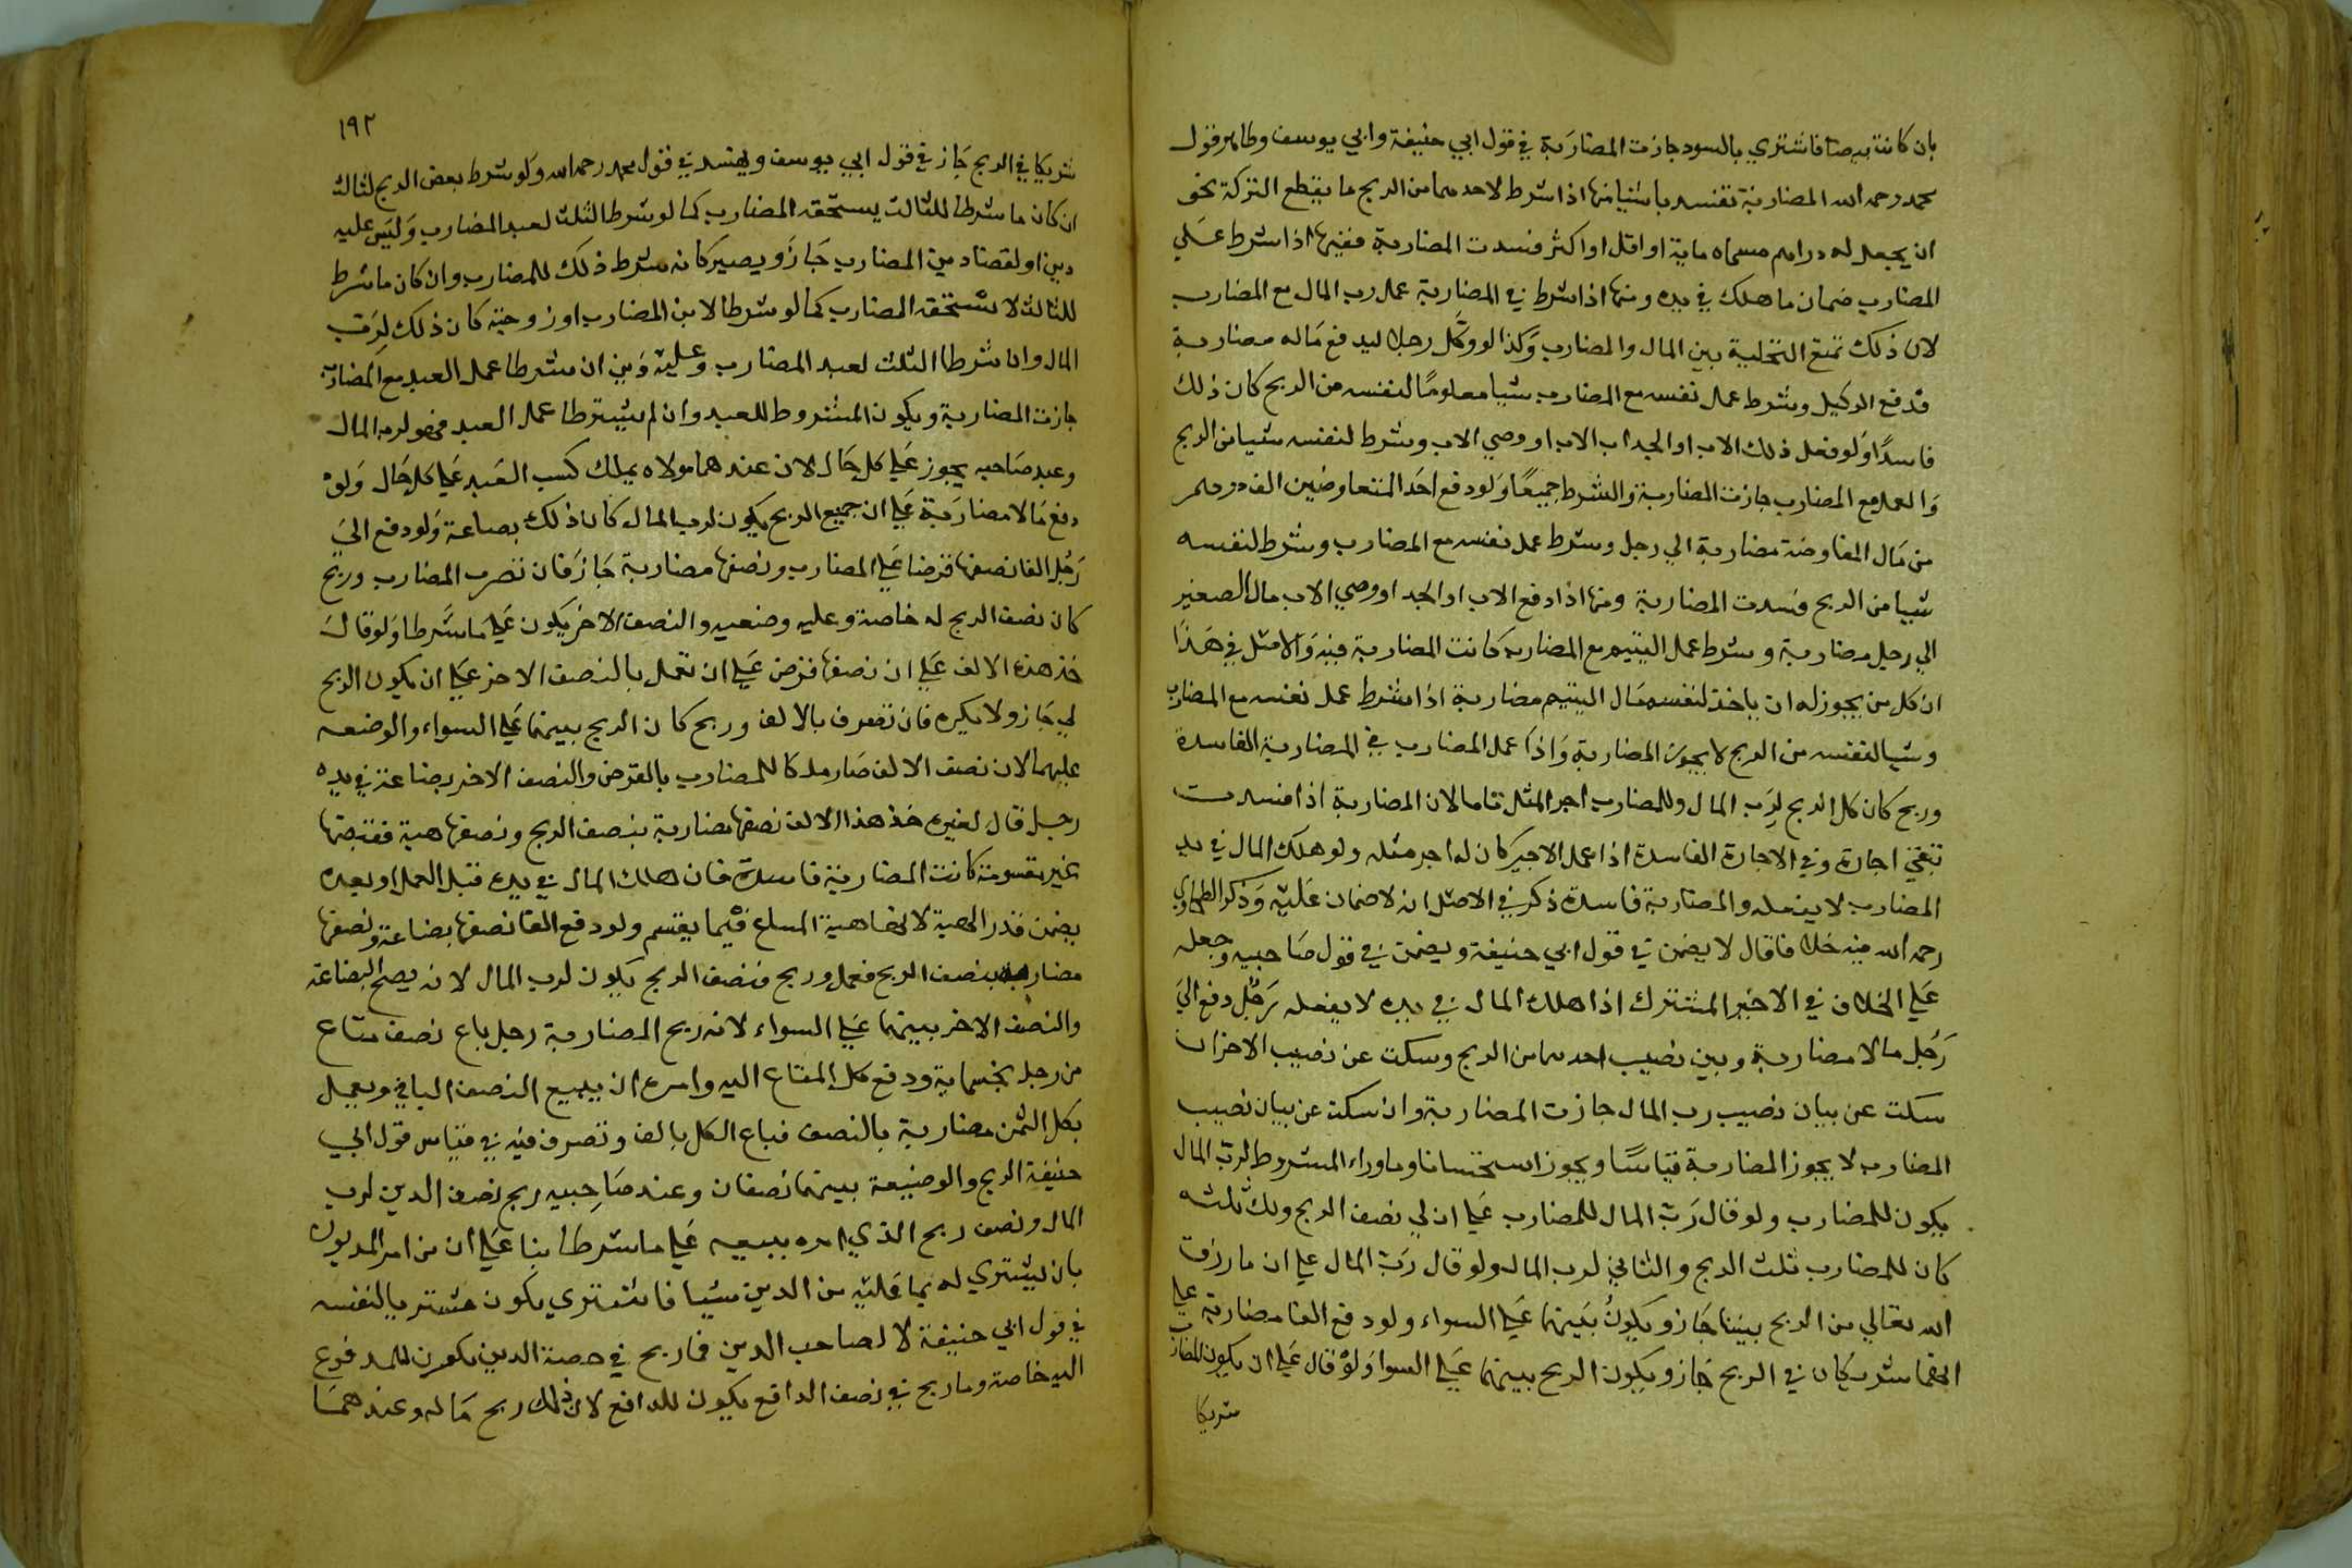 بان كانت بيضا فاشتري بالسود جازت المضاربة في قول ابي حنيفة وابي يوسف وظاهر قول
محمد رحمه الله المضاربة تفسد باشيا منها اذا شرط لاحدهما من الربح ما يقطع الشركة نحو
ان يجعل له دراهم مسماه ماية او اقل او اكثر فسدت المضاربة ففيها اذا شرط علي
المضارب ضمان ما هلك في يده ومنها اذا شرط في المضاربة عمل رب المال مع المضارب
لان ذلك تمنع التخلية بين المال والمضارب وكذا لو وكل رجلا ليدفع ماله مضاربة
فدفع الوكيل وشرط عمل نفسه مع المضارب شيا معلوما لنفسه من الربح كان ذلك
فاسدا ولو فعل ذلك الاب او الجد اب الاب او وصي الاب وشرط لنفسه شيا من الربح
والعمل مع المضارب جازت المضاربة والشرط جميعا ولو دفع احد المتفاوضين الف درهم
من مال المفاوضة مضاربة الي رجل وشرط عمل نفسه مع المضارب وشرط لنفسه
شيا من الربح فسدت المضاربة ومنها اذا دفع الاب او الجد او وصي الاب مال الصغير
الي رجل مضاربة وشرط عمل اليتيم مع المضارب كانت المضاربة فيه والاصل في هذا
ان كل من يجوز له ان ياخذ لنفسه مال اليتيم مضاربة اذا شرط عمل نفسه مع المضارب
وشيا لنفسه من الربح لا يجوز المضاربة واذا عمل المضارب في المضاربة الفاسدة
وربح كان كل الربح لرب المال وللمضارب اجر المثل تاما لان المضاربة اذا فسدت
تبقي اجارة وفي الاجارة الفاسدة اذا عمل الاجير كان له اجر مثله ولو هلك المال في يد
المضارب لا يفعله والمضاربة فاسدة ذكر في الاصل انه لا ضمان عليه وذكر الطحاوي
رحمه الله فيه خلافا قال لا يضمن في قول ابي حنيفة ويضمن في قول صاحبيه وجعله
علي الخلاف في الاجير المشترك اذا هلك المال في يده لا بفعله رجل دفع الي
رجل مالا مضاربة وبين نصيب احدهما من الربح وسكت عن نصيب الاخر ان
سكت عن بيان نصيب رب المال جازت المضاربة وان سكت عن بيان نصيب
المضارب لا يجوز المضاربة قياسا ويجوز استحسانا وما وراء المشروط لرب المال
يكون للمضارب ولو قال رب المال للمضارب علي ان لي نصف الربح ولك ثلثه
كان للمضارب ثلث الربح والثاني لرب المال ولو قال رب المال علي ان ما رزق
الله تعالي من الربح بيننا جاز ويكون بينهما علي السواء ولو دفع الفا مضاربة علي
انهما شريكان في الربح جاز ويكون الربح بينهما علي السوا ولو قال علي ان يكون للمضارب
شريكا
١٩٢
شريكا في الربح جاز في قول ابي يوسف ويفسد في قول محمد رحمه الله ولو شرط بعض الربح لثالث
ان كان ما شرطا للثالث يستحقه المضارب كما لو شرطا الثلث لعبد المضارب وليس عليه
دين او لقضاء دين المضارب جاز ويصير كانه شرط ذلك للمضارب وان كان ما شرط
للثالث لا يستحقه المضارب كما لو شرطا لابن المضارب او زوجته كان ذلك لرب
المال وان شرطا الثلث لعبد المضارب وعليه دين ان شرطا عمل العبد مع المضارب
جازت المضاربة ويكون المشروط للعبد وان لم يشترطا عمل العبد فهو لرب المال
وعند صاحبيه يجوز علي كل حال لان عندهما مولاه يملك كسب العبد علي كل حال ولو
دفع مالا مضاربة علي ان جميع الربح يكون لرب المال كان ذلك بضاعة ولو دفع الي
رجل الفا نصفها قرضا علي المضارب ونصفها مضاربة جاز فان تصرف المضارب وربح
كان نصف الربح له خاصة وعليه وضعيه والنصف الاخر يكون علي ما شرطا ولو قال
خذ هذه الالف علي ان نصفها قرض علي ان تعمل بالنصف الاخر علي ان يكون الربح
لي جاز ولا يكره فان تصرف بالالف وربح كان الربح بينهما علي السواء والوضعه
عليهما لان نصف الالف صار ملكا للمضارب بالقرض والنصف الاخر بضاعة في يده
رجل قال لغيره خذ هذا الالف نصفها مضاربة بنصف الربح ونصفها هبة فقبضها
غير مقسومة كانت المضاربة فاسدة فان هلك المال في يده قبل العمل او بعده
يضمن قدر الهبة لانها هبة المشاع فيما يقسم ولو دفع الفا نصفها بضاعة ونصفها
مضاربة بنصف الربح فعمل وربح فنصف الربح يكون لرب المال لانه يصح البضاعة
والنصف الاخر بينهما علي السواء لانه ربح المضاربة رجل باع نصف متاع
من رجل بخمسماية ودفع كل المتاع اليه وامره ان يبيع النصف الباقي ويعمل
بكل الثمن مضاربة بالنصف فباع الكل بالف وتصرف فيه في قياس قول ابي
حنيفة الربح والوضيعة بينهما نصفان وعند صاحبيه ربح نصف الدين لرب
المال ونصف ربح الذي امره ببيعه علي ما شرطا بنا علي ان من امر المديون
بان يشتري له بما عليه من الدين شيا فاشتري يكون مشتريا لنفسه
في قول ابي حنيفة لا لصاحب الدين فما ربح في حصة الدين يكون للمدفوع
اليه خاصة وما ربح في نصف الدافع يكون للدافع لان ذلك ربح ماله وعندهما